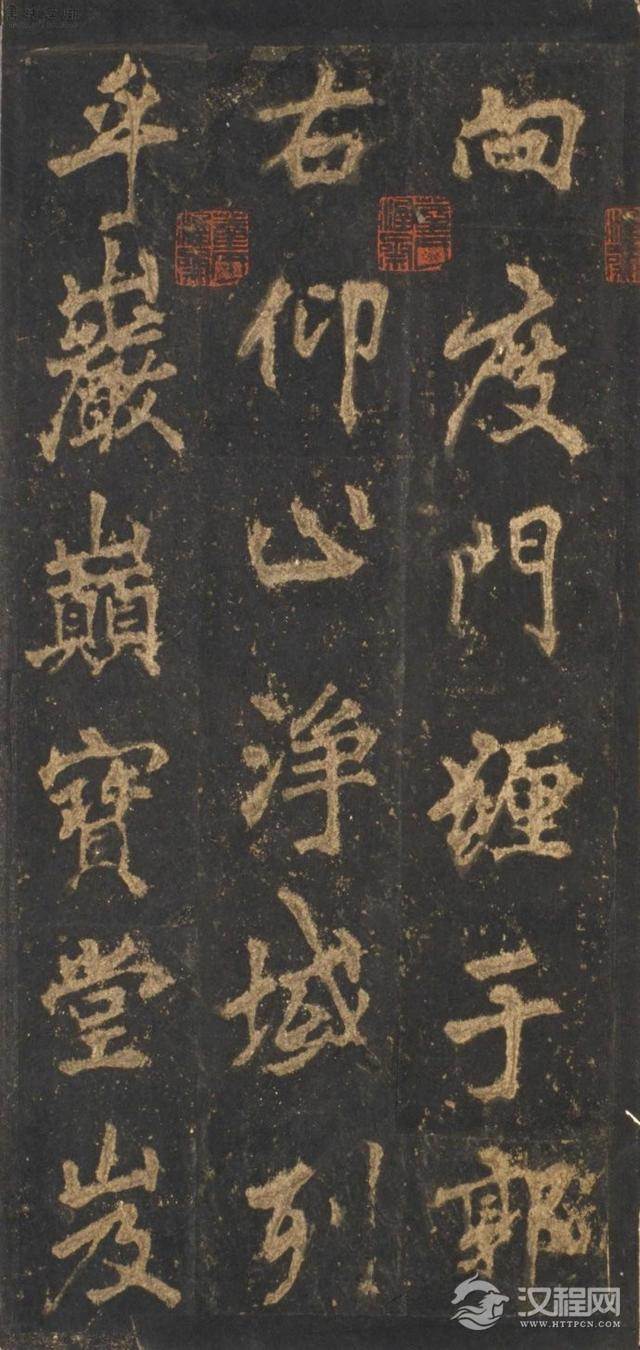 向度門纏于郭
右仰止淨域列
乎巖巔寶堂岌
汉程网
WWW.HTTPCN.COM